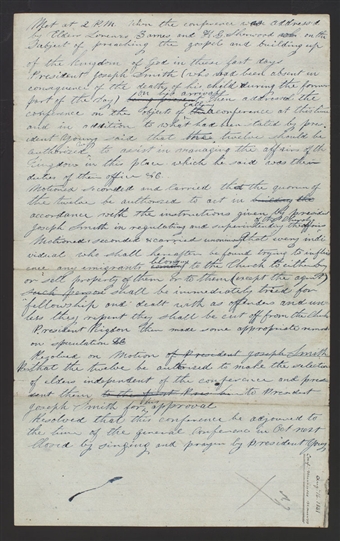 Met at 2 P.M. when the conference was addressed
by Elders Lorenzo Barnes and H. G. Sherwood on the
Subject of preaching the gospel and building up
of the Kingdom of God in these last days
President Joseph Smith (who had been absent in
consequence of the death of his child during the former
part of the day) then addressed the
on his arrival
conference on the object of calling a conference at this time
and in addition to what had been stated by pres-
ident Young said that the twelve should be
authorised to assist in managing the affairs of the
Kingdom in this place which he said was the
duties of their office &c
Motioned seconded and carried that the quorum of
the twelve be authorised to act in
accordance with the instructions given by president
Joseph Smith in regulating and superintending the affairs
of the Church
Motioned seconded & carried unanimously that every indi-
vidual who shall hereafter be found trying to influ-
ence any emigrants belonging to the Church to buy
or sell property of them or to them (except the agents)
shall be immediately tried for
fellowship and dealt with as offenders and un-
less they repent they shall be cut off from the Church
President Rigdon then made some appropriate remarks
on speculation &c
Resolved on Motion of President Joseph Smith
that the twelve be authorised to make the selection
of elders independent of the conference and pres-
ent them to President
Joseph Smith for his approval
Resolved that this conference be adjourned to
the time of the general conference in Oct next
Closed by singing and prayer by President Young
Aug 16 1841